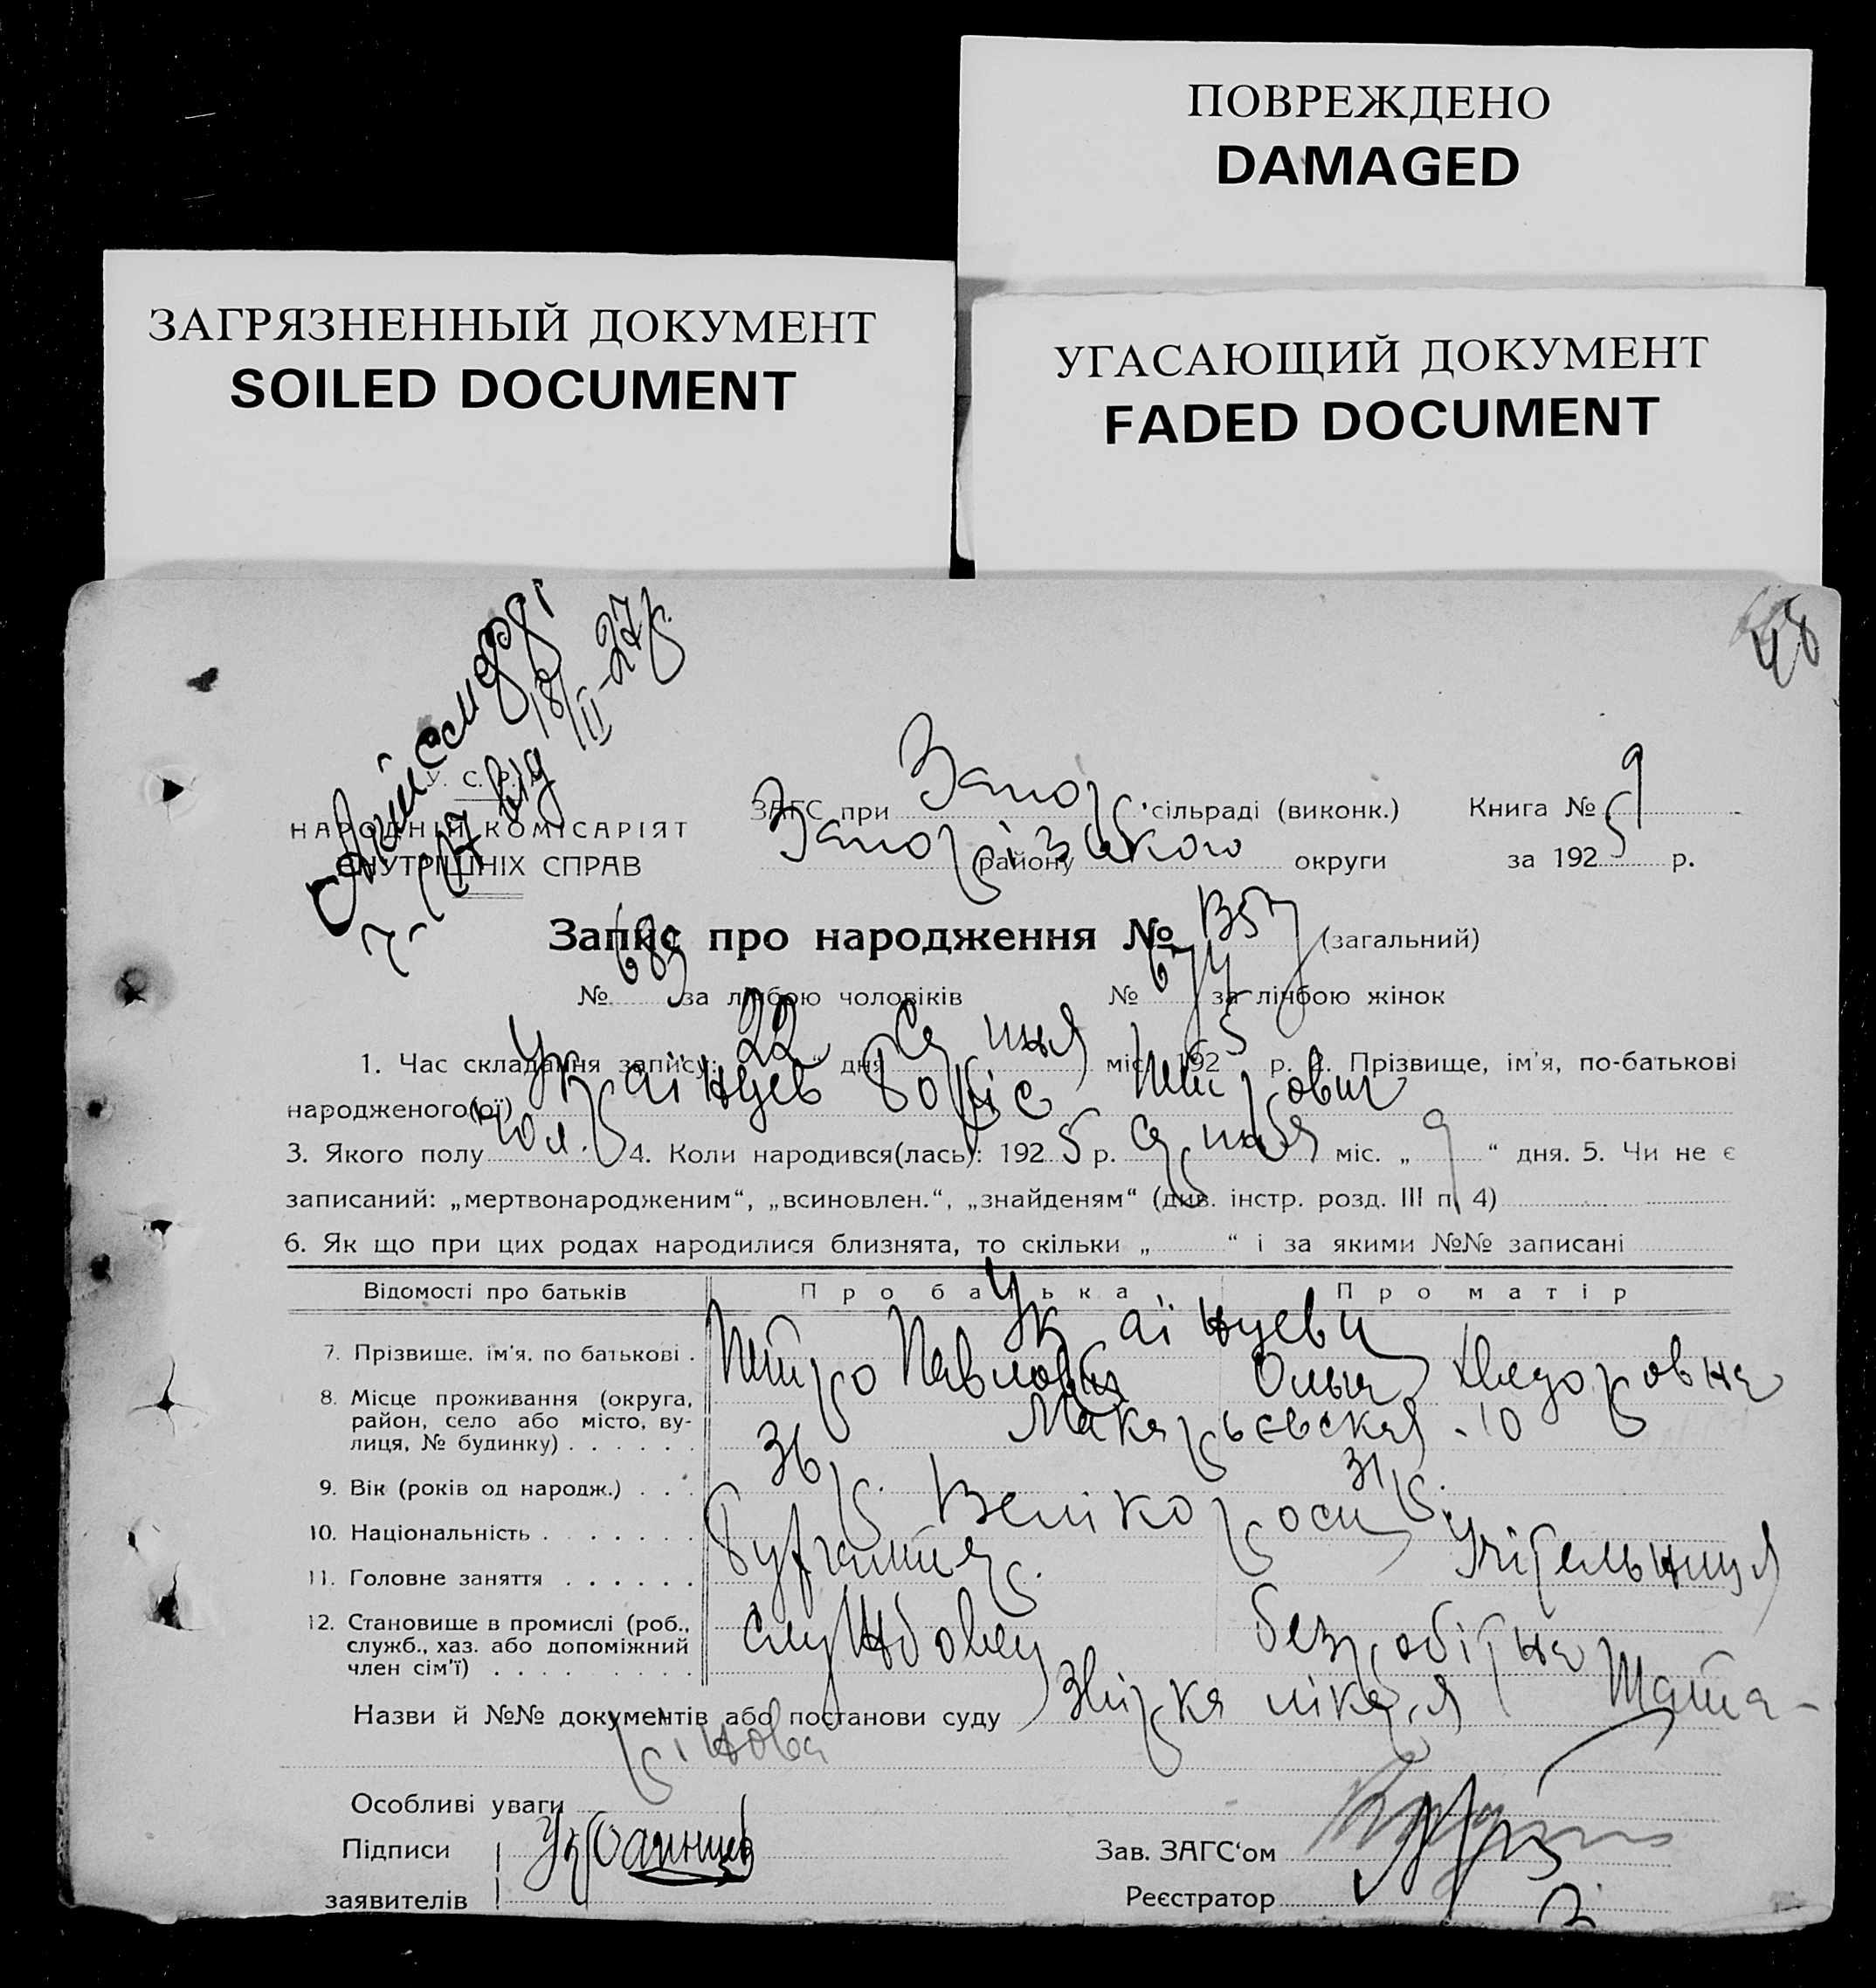 ПОВРЕЖДЕНО
DAMAGED
ЗАГРЯЗНЕННЫЙ ДОКУМЕНТ
SOILED DOCUMENT
УГАСАЮЩИЙ ДОКУМЕНТ
FADED DOCUMENT
48
від 18/II-27р.
У. С. Р. Р.
НАРОДНІЙ КОМІСАРІЯТ
ВНУТРІШНІХ СПРАВ
ЗАГС при Запор. сільраді (виконк.) Книга № 9
району Запорізького округи за 1925 р.
Запис про народження № 1357 (загальний)
№ 683 за лічбою чоловіків № 674 за лічбою жінок
1. Час складання запису: „22“ дня Серпня міс. 1925 р. 2. Прізвище, ім'я, по-батькові
народженого(ої) Украінцев Боріс Петрович
3. Якого полу чол. 4. Коли народився(лась): 1925 р. Серпня міс. „9“ дня. 5. Чи не є
записаний: „мертвонародженим“, „всиновлен.“, „знайденям“ (див. інстр. розд. III п. 4)
6. Як що при цих родах народилися близнята, то скільки „ “ і за якими №№ записані
Відомості про батьків Про батька Про матір
Украінцеви
7. Прізвище, ім'я, по батькові . Петро Павлович Ольга Федоровна
8. Місце проживання (округа, район, село або місто, вулиця, № будинку) . . . . . . Макарьєвская - 10
9. Вік (років од народж.) . . . 36 р. 31 р.
10. Національність . . . . . . . Велікороси
11. Головне заняття . . . . . . Бухгалтер. Учітельниця
12. Становище в промислі (роб., служб., хаз. або допоміжний член сім'ї) . . . . . . . . . Службовец безробітна
Назви й №№ документів або постанови суду Звірка лікаря Шата-
рінова
Особливі уваги
Підписи Украинцев Зав. ЗАГС'ом
заявителів Реєстратор